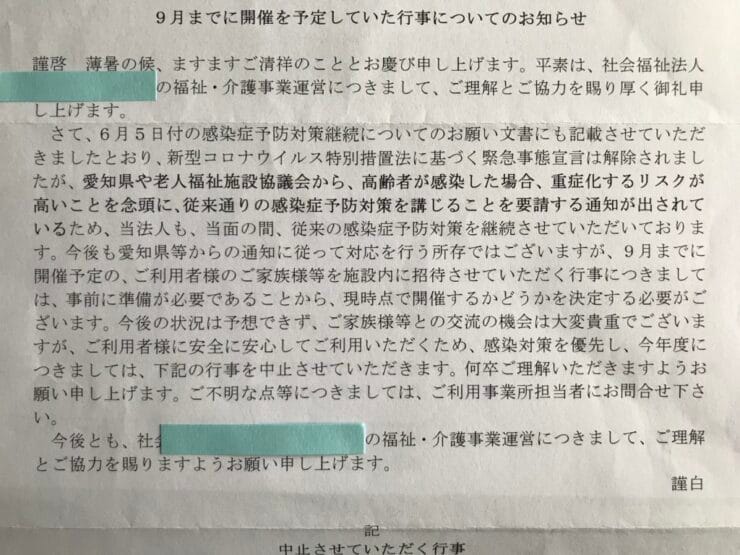 ９月までに開催を予定していた行事についてのお知らせ
謹啓　薄暑の候、ますますご清祥のこととお慶び申し上げます。平素は、社会福祉法人
の福祉・介護事業運営につきまして、ご理解とご協力を賜り厚く御礼申
し上げます。
さて、６月５日付の感染症予防対策継続についてのお願い文書にも記載させていただ
きましたとおり、新型コロナウイルス特別措置法に基づく緊急事態宣言は解除されまし
たが、愛知県や老人福祉施設協議会から、高齢者が感染した場合、重症化するリスクが
高いことを念頭に、従来通りの感染症予防対策を講じることを要請する通知が出されて
いるため、当法人も、当面の間、従来の感染症予防対策を継続させていただいておりま
す。今後も愛知県等からの通知に従って対応を行う所存ではございますが、９月までに
開催予定の、ご利用者様のご家族様等を施設内に招待させていただく行事につきまして
は、事前に準備が必要であることから、現時点で開催するかどうかを決定する必要がご
ざいます。今後の状況は予想できず、ご家族様等との交流の機会は大変貴重でございま
すが、ご利用者様に安全に安心してご利用いただくため、感染対策を優先し、今年度に
つきましては、下記の行事を中止させていただきます。何卒ご理解いただきますようお
願い申し上げます。ご不明な点等につきましては、ご利用事業所担当者にお問合せ下さ
い。
今後とも、社会の福祉・介護事業運営につきまして、ご理解
とご協力を賜りますようお願い申し上げます。
謹白
記
中止させていただく行事